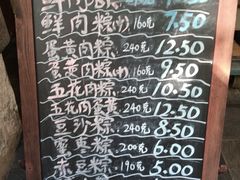 鲜肉粽(中) 160克 7.50
蛋黄肉粽 240克 12.50
蛋黄肉粽(中) 160克 9.50
五花肉粽 240克 10.50
五花肉蛋黄 240克 12.50
豆沙粽 240克 8.50
蜜枣粽 200克 6.00
赤豆粽 190克 5.00